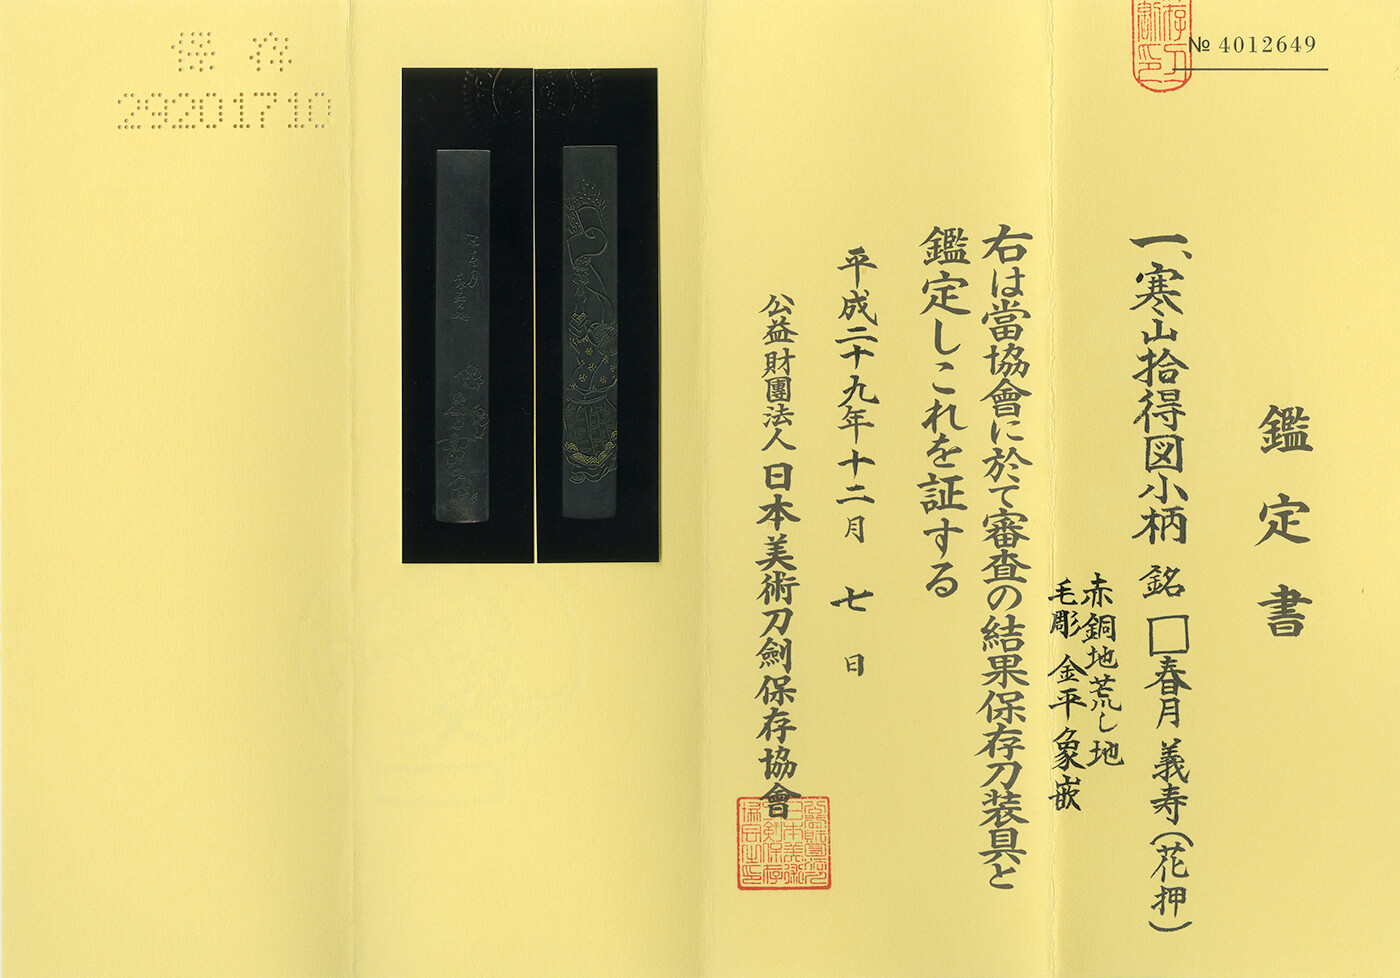 № 4012649
鑑定書
一、寒山拾得図小柄 銘 □春月義寿(花押)
赤銅地荒し地
毛彫 金平象嵌
右は當協會に於て審査の結果保存刀装具と
鑑定しこれを証する
平成二十九年十二月 七 日
公益財團法人 日本美術刀劍保存協會
保存
29201710